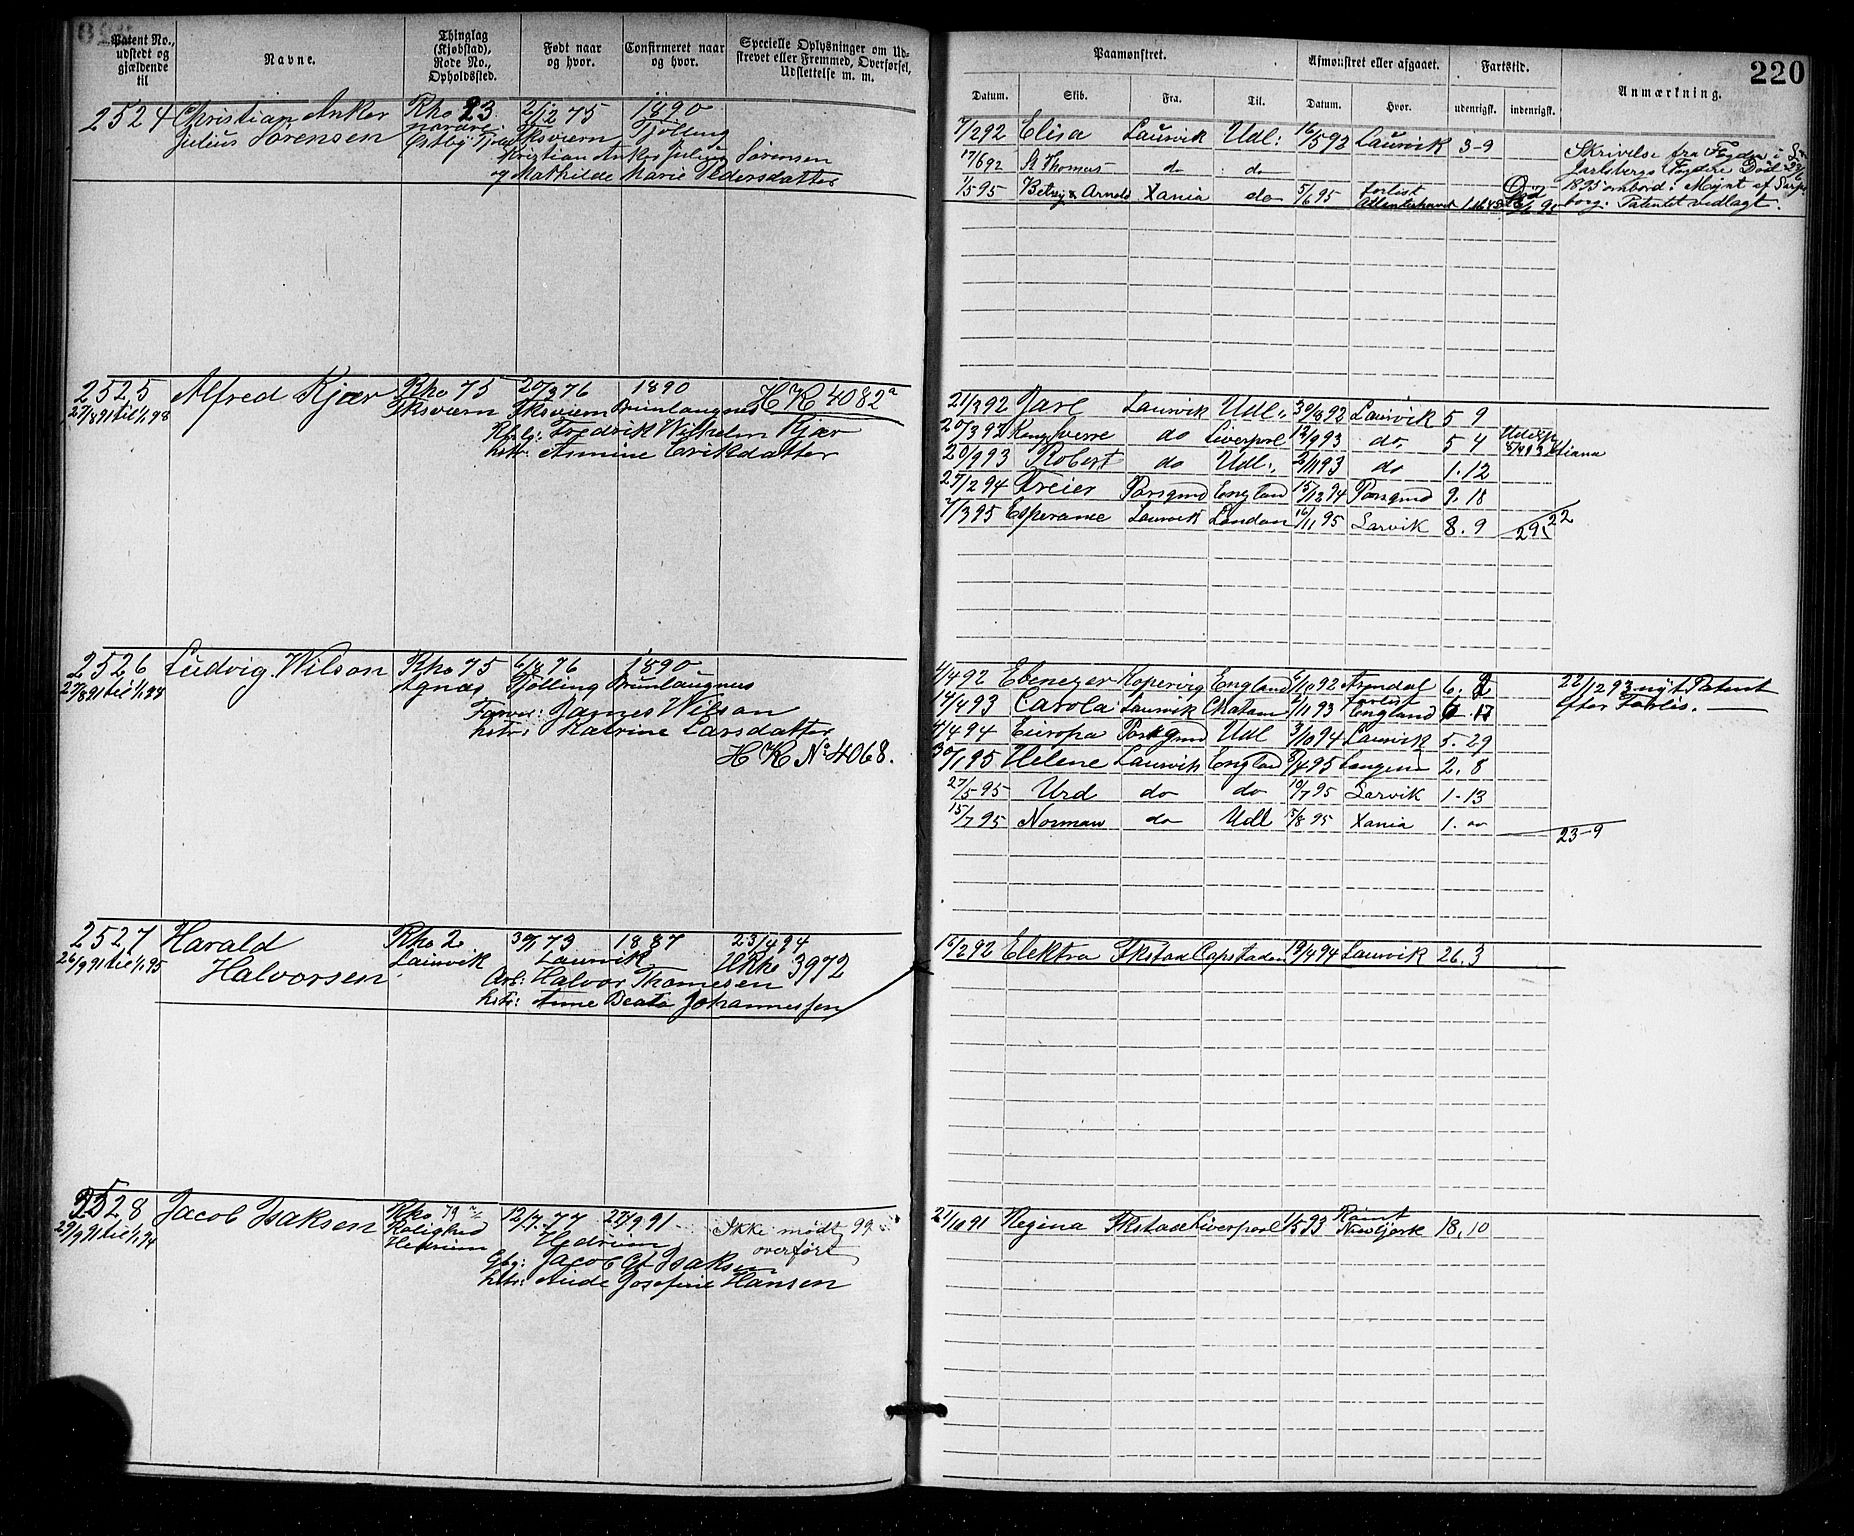 Patent No., udstedt og gjældende til
Navne.
Thinglag (Kjøbstad), Rode No., Opholdssted.
Født naar og hvor.
Confirmeret naar og hvor.
Specielle Oplysninger om Udstrevet eller Fremmed, Overførsel, Udslettelse m. m.
Paamønstret.
Afmønstret eller afgaaet.
Fartstid.
Anmærkning.
220
Datum.
Skib.
Fra.
Til.
Datum.
Hvor.
udenrigsk.
indenrigsk.
2524 Christian Anker Rho 23 2/12 75 1890
Julius Sørensen nordre Fksværn Tjølling
Østby
Kristian Anker Julius Sørensen
og Mathilde Marie Pedersdatter
7/2 92 Elisa Laurvik Udl: 16/5 92 Laurvik 3-9
17/6 92 St Thomas do do
1/5 95 Betsy & Arnold Xania do 5/6 95 forlist Atlanterhavet
Skrivelse fra Fogden i
Jarlsbergs Fogderi Død
1895 ombord i Mynt af Sarps
borg. Patentet vedlagt.
2525 Alfred Kjær Rho 75 20/3 76 1890 HR 4082a
27/8 91 til 1/1 98 Fksværn Fksværn Brunlaugnes
Fredrik Wilhelm Kjær
hstr: Annine Erikdatter
21/3 92 Jarl Laurvik Udl: 30/8 92 Laurvik 5 9
20/3 93 Kong Sverre do Liverpool 12/9 93 do 5 4
20/9 93 Robert do Udl: 2/11 93 do 1.12
27/2 94 Freier Porsgrnd England 15/12 94 Porsgrnd 9.18
7/3 95 Esperance Laurvik London 16/11 95 Larvik 8.9
2526 Ludvig Wilson Rho 75 6/8 76 1890
27/8 91 til 1/1 98 Agnæs Tjølling Brunlaugnes
Farver: James Wilson
hstr: Katrine Larsdatter
HR No 4068.
4/4 92 Ebenezer Kopervig England 6/10 92 Arendal 6. 2
14/4 93 Carola Laurvik Chatam 1/11 93 forlist England 6.17
4/4 94 Europa Porsgrnd Udl 3/10 94 Laurvik 5.29
30/1 95 Helene Laurvik England 8/4 95 Langesu 2.8
27/5 95 Urd do do 10/7 95 Larvik 1-13
15/7 95 Norman do Udl 15/8 95 Xania 1. "
23-9
22/12 93 nyt Patent
efter Forlis.
2527 Harald Rho 2 30/1 73 1887 23/4 94
26/9 91 til 1/1 95 Halvorsen Laurvik Laurvik HRho 3972
Arb: Halvor Thomesen
hstr: Anne Beata Johannessen
15/2 92 Elektra Fkstad Capstaden 19/4 94 Laurvik 26.3
2528 Jacob Isaksen Rho 79 12/7 77 27/9 91 Ikke mødt 99
29/9 91 til 1/1 94 Rolighed Hedrum overført
Hedrum
Gbg: Jacob Isaksen
hstr: Aude Josefine Hansen
21/10 91 Regina Fkstad Liverpool 1/5 93 Rømt Newyork 18.10